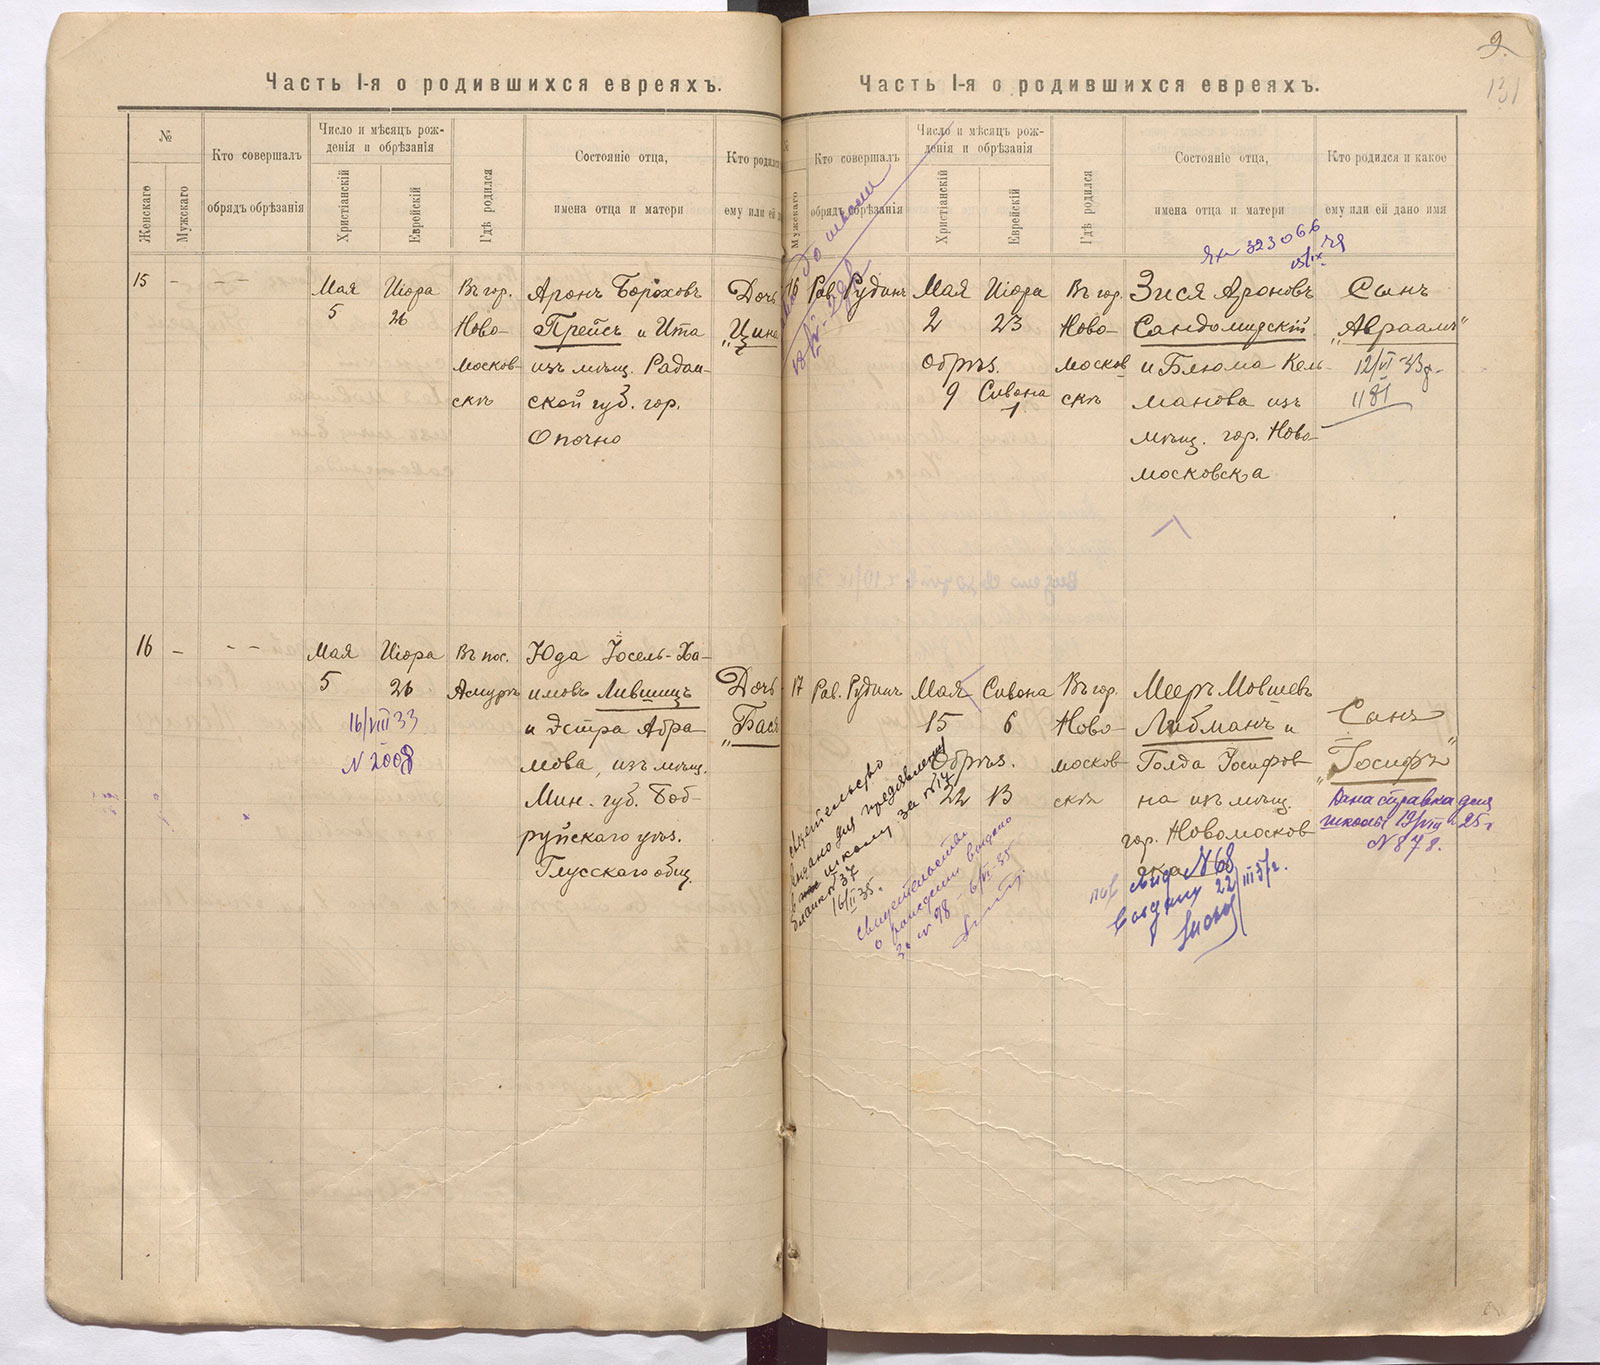 Часть I-я о родившихся евреяхъ.
№
Женскаго
Мужскаго
Кто совершалъ
обрядъ обрѣзанія
Число и мѣсяцъ рож-
денія и обрѣзанія
Христіанскій
Еврейскій
Гдѣ родился
Состояніе отца,
имена отца и матери
Кто родился
ему или ей да
15 - - -
Мая
5
Иіора
26
Въ гор.
Ново-
москов-
скѣ
Аронъ Бороховъ
Прейсъ и Ита
изъ мѣщ. Радом-
ской губ. гор.
Опочно
Дочь
"Цина
16 - - -
Мая
5
Иіора
26
16/VIII 33
N 2008
Въ пос.
Амурѣ
Юда Іосель-Ха-
имовъ Лившицъ
и Эстра Абра-
мова, изъ мѣщ.
Мин. губ. Боб-
руйскаго уѣз.
Глусскаго общ.
Дочь
"Бася
9
131
Часть I-я о родившихся евреяхъ.
Мужскаго
Кто совершалъ
обрядъ обрѣзанія
Число и мѣсяцъ рож-
денія и обрѣзанія
Христіанскій
Еврейскій
Гдѣ родился
Состояніе отца,
имена отца и матери
Кто родился и какое
ему или ей дано имя
323066
16
Рав. Рудинъ
Мая
2
Обрѣз.
9
Иіора
23
Сивона
1
Въ гор.
Ново-
москов
скѣ
Зися Ароновъ
Сандомирскій
и Блюма Кель-
манова изъ
мѣщ. гор. Ново-
московска
Сынъ
"Авраамъ"
12/VI 33г.
1181
17
Рав. Рудинъ
Мая
15
Обрѣз.
22
Сивона
6
13
Въ гор.
Ново-
москов
скѣ
Мееръ Мовшевъ
Либманъ и
Голда Іосифов
на изъ мѣщ.
гор. Новомосков
ска
Сынъ
"Іосифъ"
Дана справка для
школы 19/VIII 25г
N 878.
свидетельство
выдано для предъявления
в школу за № 14
бланк № 37
16/II 35.
свидетельство
о рождении выдано
за № 98 - 6/VI 35
пов свид N 68
выдану 22/III 37г.